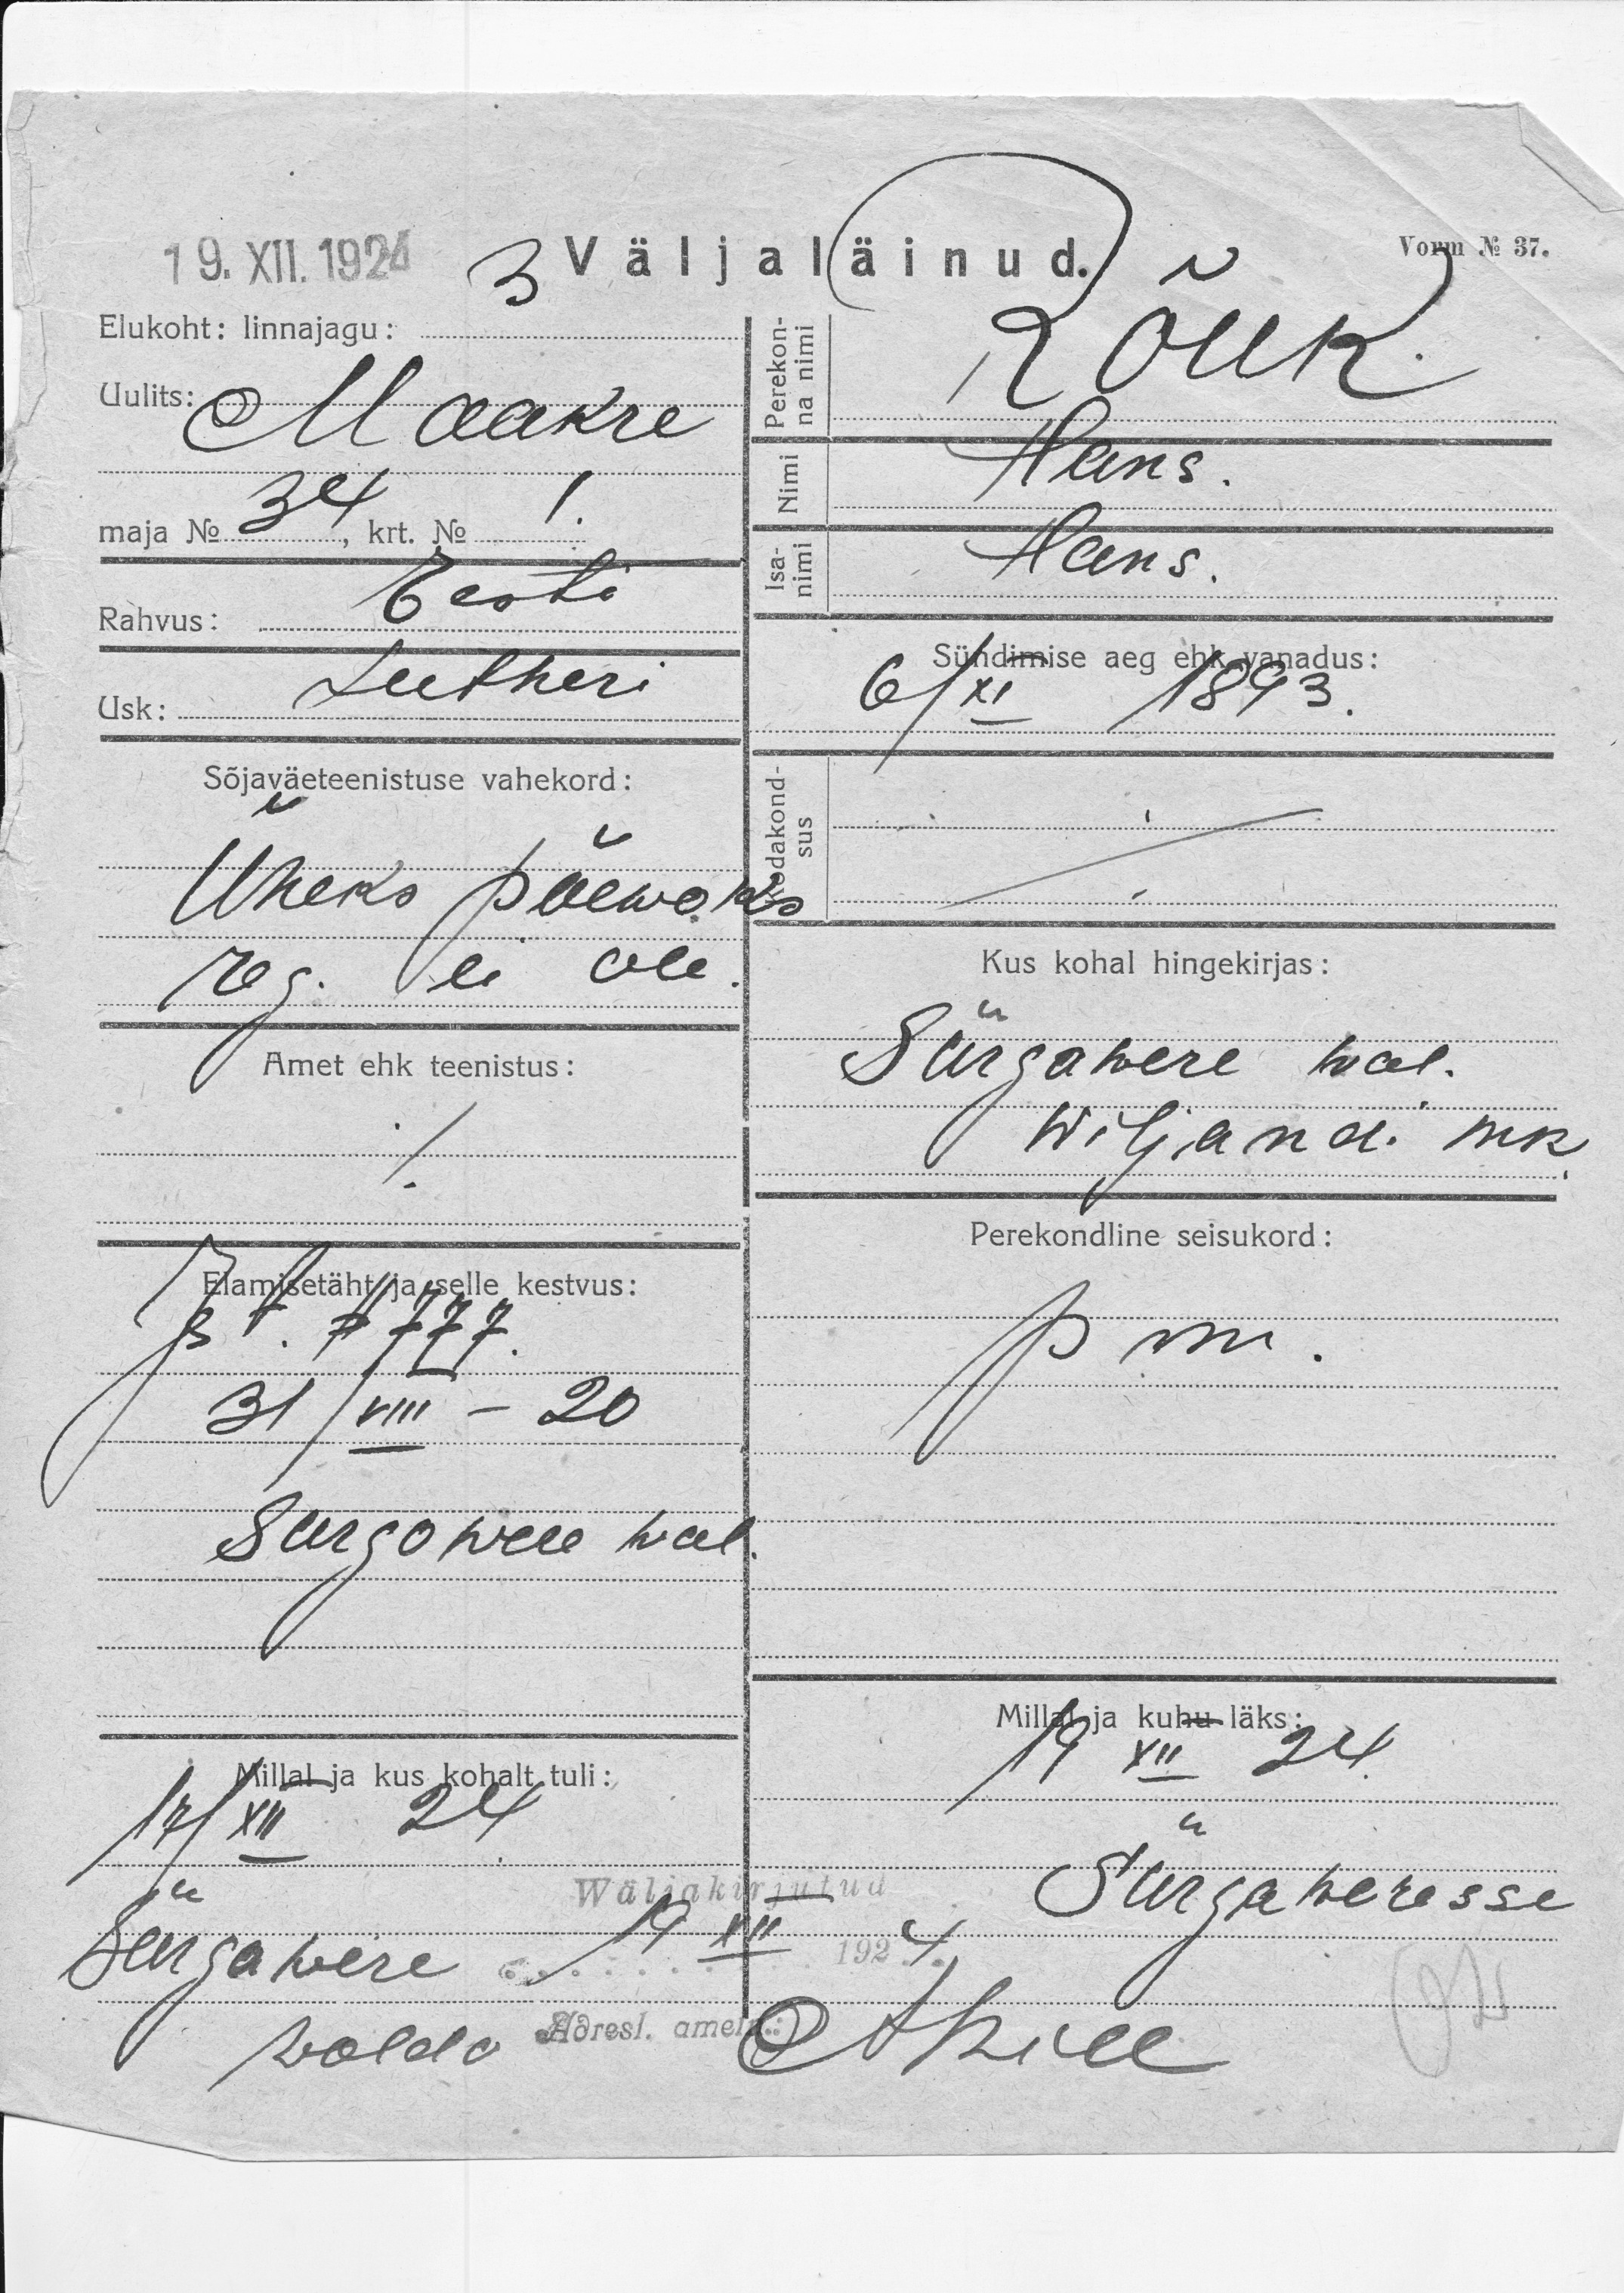 19. XII. 1924
3
Väljaläinud.
Vorm № 37.
Elukoht: linnajagu:
Uulits: Maakre
maja № 34, krt. № 1.
Rahvus: Eesti
Usk: Lutheri
Sõjaväeteenistuse vahekord:
Üheks päewaks
reg. ei ole.
Amet ehk teenistus:
Elamisetäht ja selle kestvus:
31/VIII – 20
Sürgawere wal.
Millal ja kus kohalt tuli:
17/XII 24
Sürgawere
walda
Perekonna nimi
Rõuk.
Nimi
Hans.
Isanimi
Hans.
Sündimise aeg ehk vanadus:
6/XI 1893.
Kodakondsus
Kus kohal hingekirjas:
Sürgawere wal.
Wiljandi mk.
Perekondline seisukord:
Millal ja kuhu läks:
19 XII 24.
Sürgaweresse
Wäljakirjutud
19 XII 1924.
Adresl. ametn.: